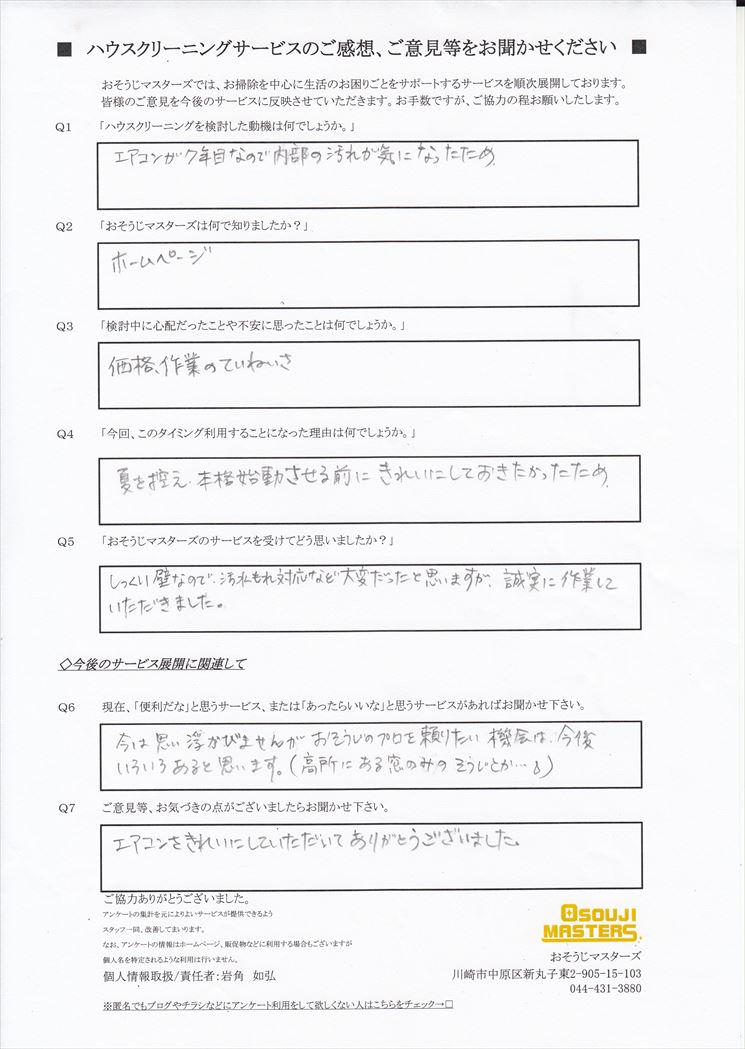 ■ ハウスクリーニングサービスのご感想、ご意見等をお聞かせください ■
おそうじマスターズでは、お掃除を中心に生活のお困りごとをサポートするサービスを順次展開しております。
皆様のご意見を今後のサービスに反映させていただきます。お手数ですが、ご協力の程お願いしたします。
Q1 「ハウスクリーニングを検討した動機は何でしょうか。」
エアコンが7年目なので内部の汚れが気になったため
Q2 「おそうじマスターズは何で知りましたか？」
ホームページ
Q3 「検討中に心配だったことや不安に思ったことは何でしょうか。」
価格、作業のていねいさ
Q4 「今回、このタイミング利用することになった理由は何でしょうか。」
夏を控え、本格始動させる前にきれいにしておきたかったため
Q5 「おそうじマスターズのサービスを受けてどう思いましたか？」
しっくい壁なので、汚水もれ対応など大変だったと思いますが、誠実に作業して
いただきました。
◇今後のサービス展開に関連して
Q6 現在、「便利だな」と思うサービス、または「あったらいいな」と思うサービスがあればお聞かせ下さい。
今は思い浮かびませんがおそうじのプロを頼りたい機会は、今後
いろいろあると思います。（高所にある窓のみのそうじとか…♪）
Q7 ご意見等、お気づきの点がございましたらお聞かせ下さい。
エアコンをきれいにしていただいてありがとうございました。
ご協力ありがとうございました。
アンケートの集計を元によりよいサービスが提供できるよう
スタッフ一同、改善してまいります。
なお、アンケートの情報はホームページ、販促物などに利用する場合もございますが
個人名を特定されるような利用は行いません。
個人情報取扱/責任者:岩角 如弘
※匿名でもブログやチラシなどにアンケート利用をして欲しくない人はこちらをチェック→□
OSOUJI
MASTERS
おそうじマスターズ
川崎市中原区新丸子東2-905-15-103
044-431-3880